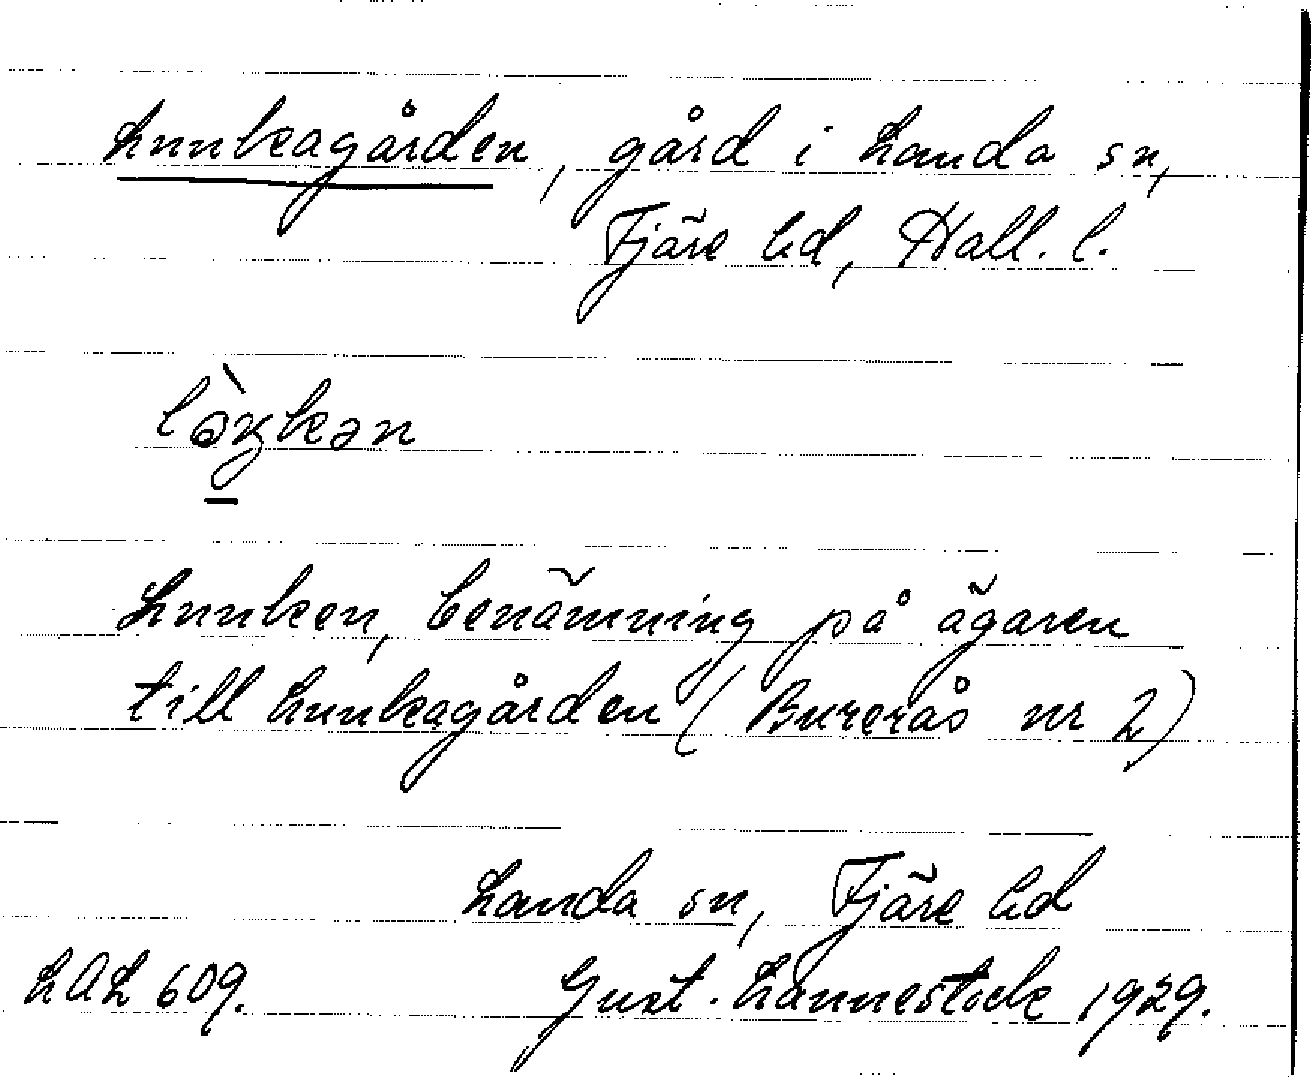 Lunkagården, gård i Landa sn,
Fjäre hd, Hall. l.
Lunken, benämning på ägaren
till Lunkagården (Burerås nr 2)
Landa sn, Fjäre hd
LAL 609. Gust. Lannestock 1929.